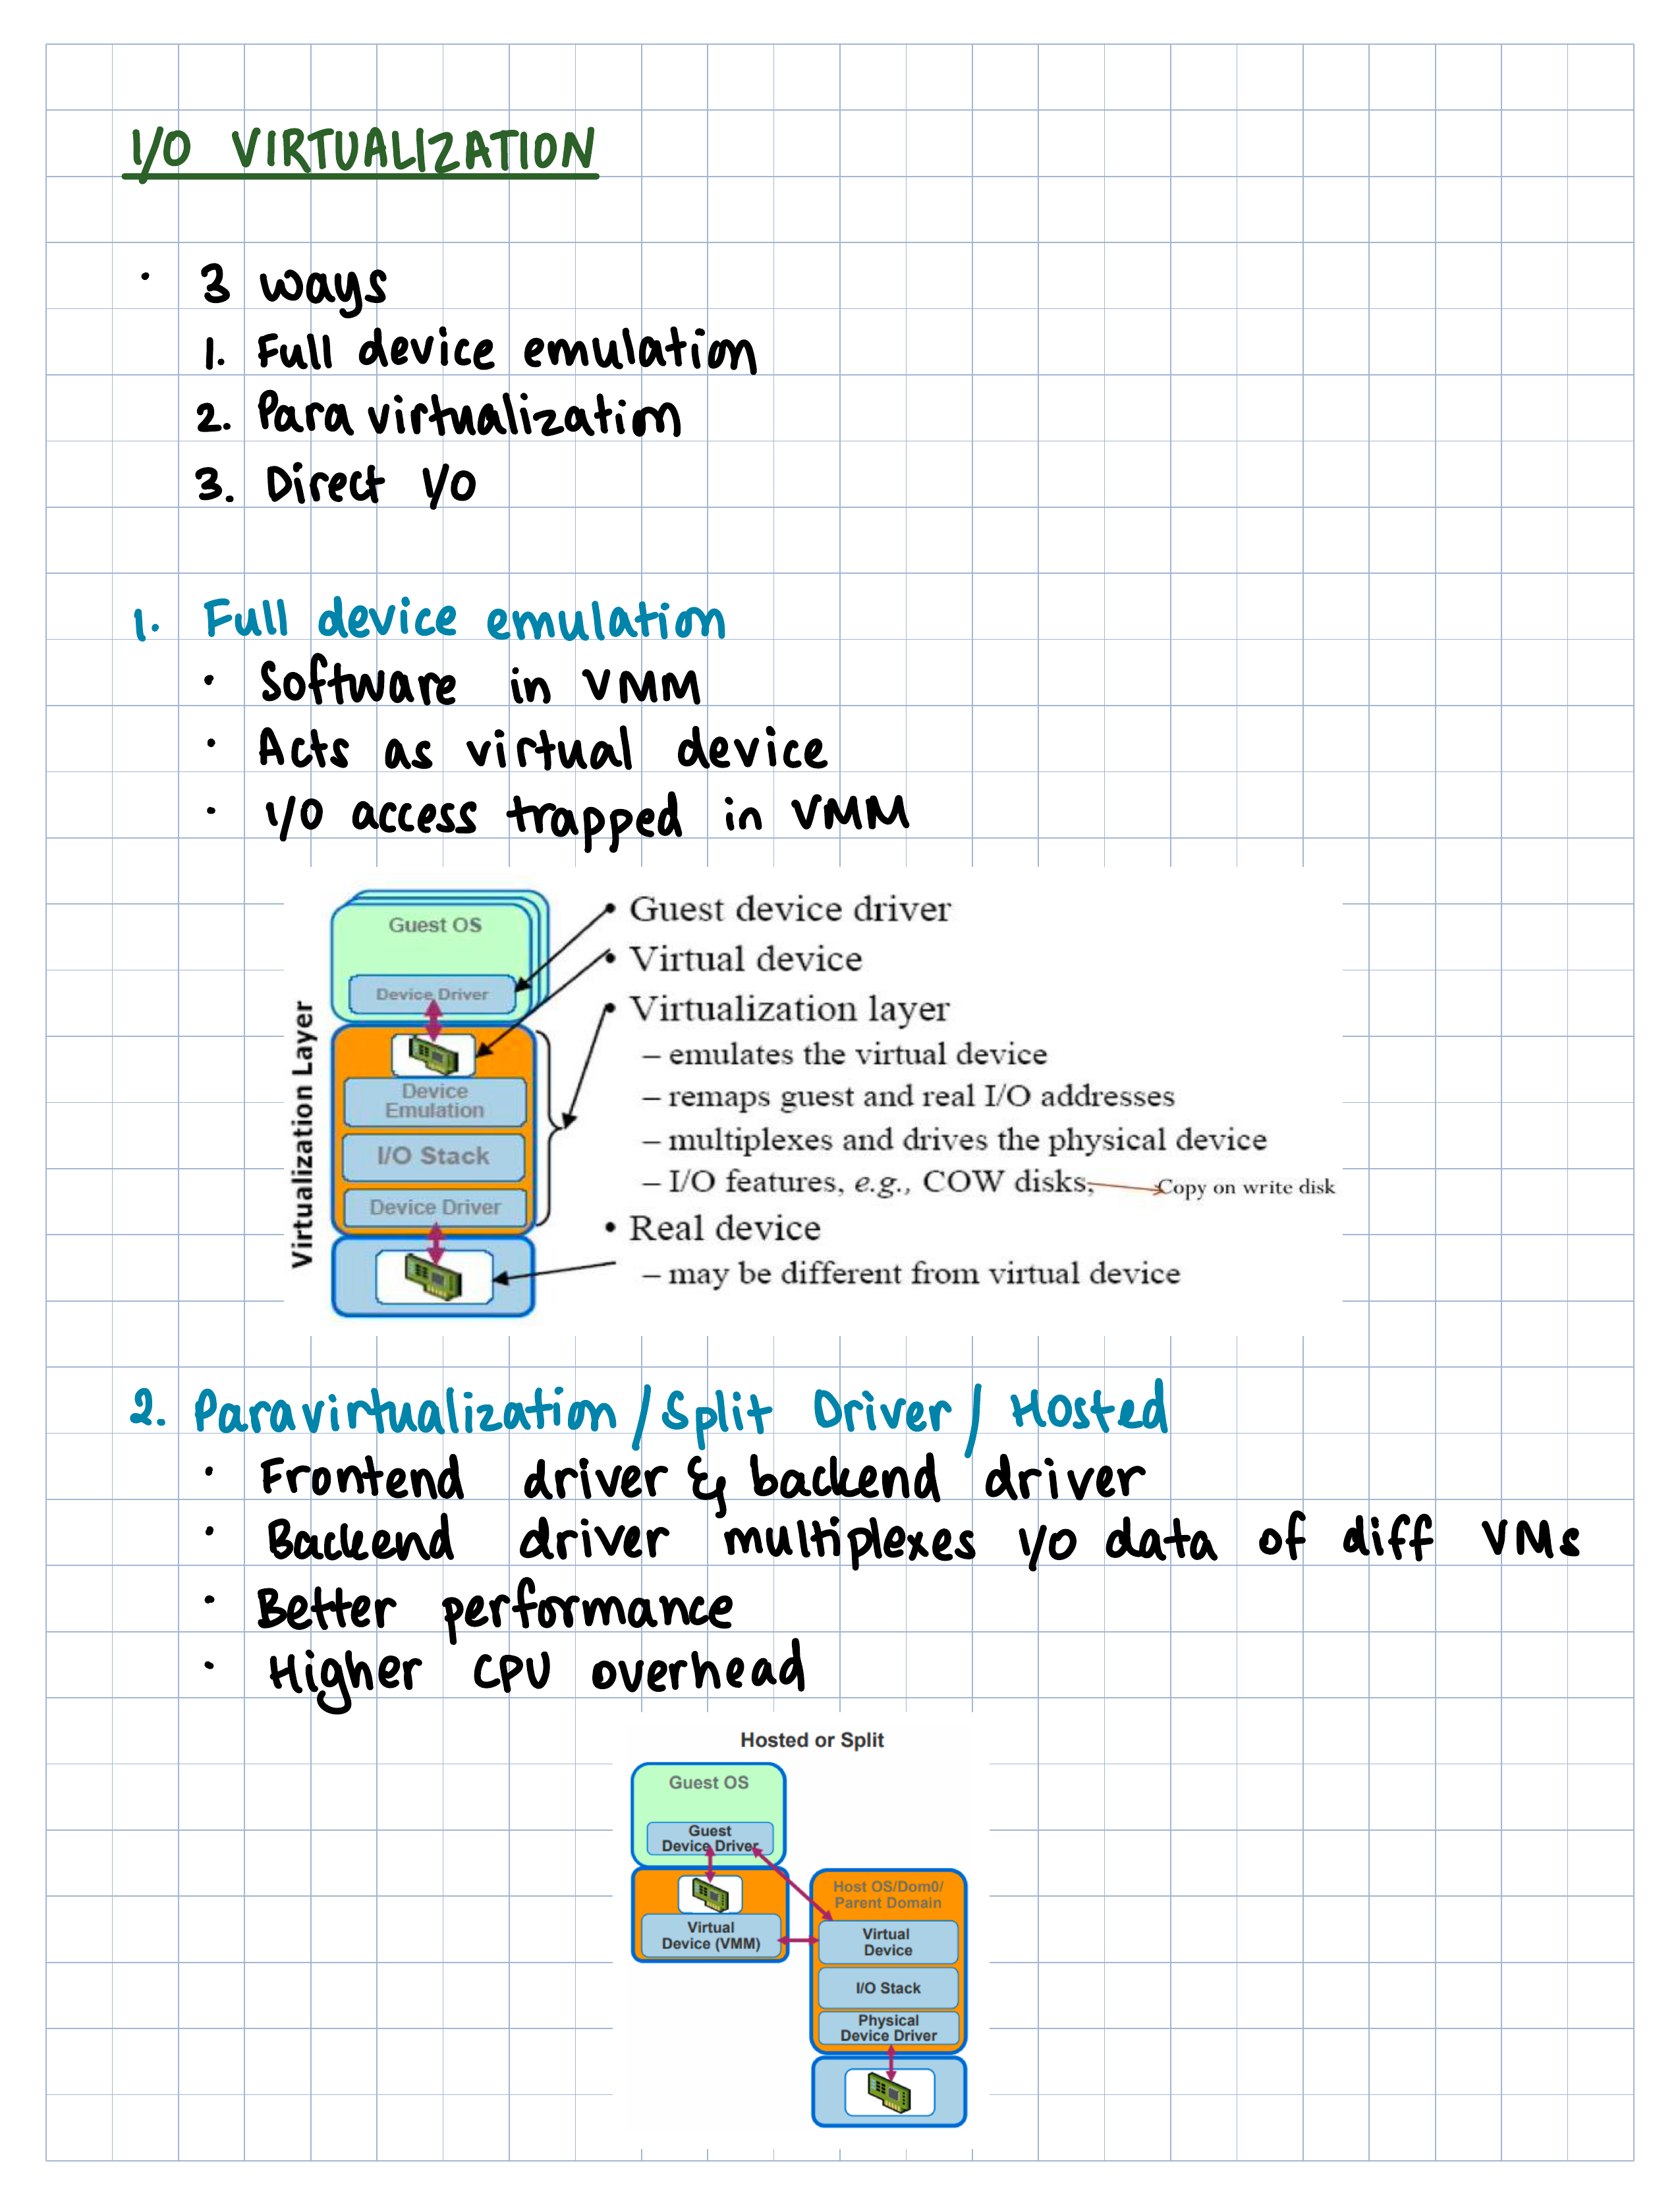 I/O VIRTUALIZATION
· 3 ways
1. Full device emulation
2. Para virtualization
3. Direct I/O
1. Full device emulation
· Software in VMM
· Acts as virtual device
· I/O access trapped in VMM
Guest OS
Device Driver
Device
Emulation
I/O Stack
Device Driver
Virtualization Layer
• Guest device driver
• Virtual device
• Virtualization layer
– emulates the virtual device
– remaps guest and real I/O addresses
– multiplexes and drives the physical device
– I/O features, e.g., COW disks, Copy on write disk
• Real device
– may be different from virtual device
2. Paravirtualization / Split Driver / Hosted
· Frontend driver & backend driver
· Backend driver multiplexes I/O data of diff VMs
· Better performance
· Higher CPU overhead
Hosted or Split
Guest OS
Guest
Device Driver
Virtual
Device (VMM)
Host OS/Dom0/
Parent Domain
Virtual
Device
I/O Stack
Physical
Device Driver